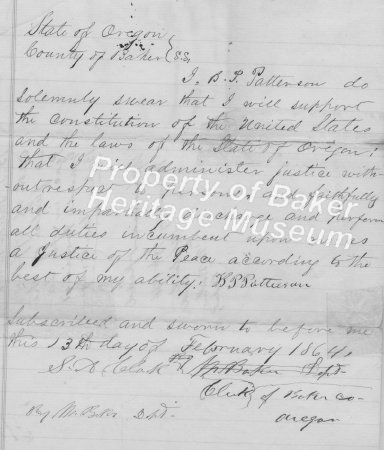 State of Oregon
County of Baker } S.S.
I, B. P. Patterson do
Solemnly swear that I will support
the Constitution of the United States
and the laws of the State of Oregon;
that I will administer justice with-
out respect to persons, and faithfully
and impartially discharge and perform
all duties incumbent upon me as
a Justice of the Peace according to the
best of my ability. B P Patterson
Property of Baker
Heritage Museum
Subscribed and sworn to before me
this 13th day of February 1864.
S. A. Clark
Baker Dpt
Clerk of Baker Co-
Oregon
By Baker Dpt